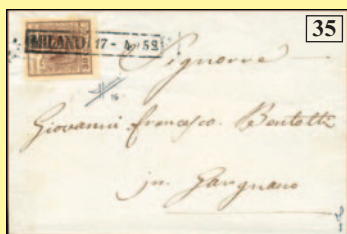 35
MILANO 17-
Signore
Giovanni Francesco Bontotti
in Gargnano